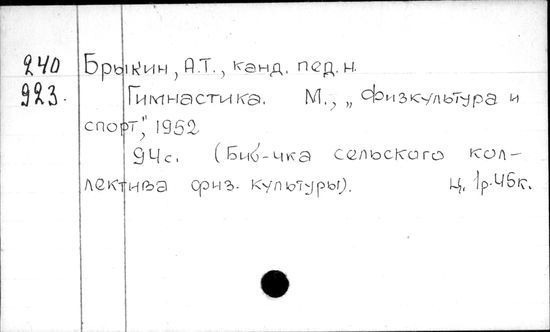 240 Брыкин, А.Т., канд. пед. н.
923. Гимнастика. М., „Физкультура и
спорт", 1952
94с. (Биб-чка сельского кол-
лектива физ. культуры). Ц. 1р.45к.